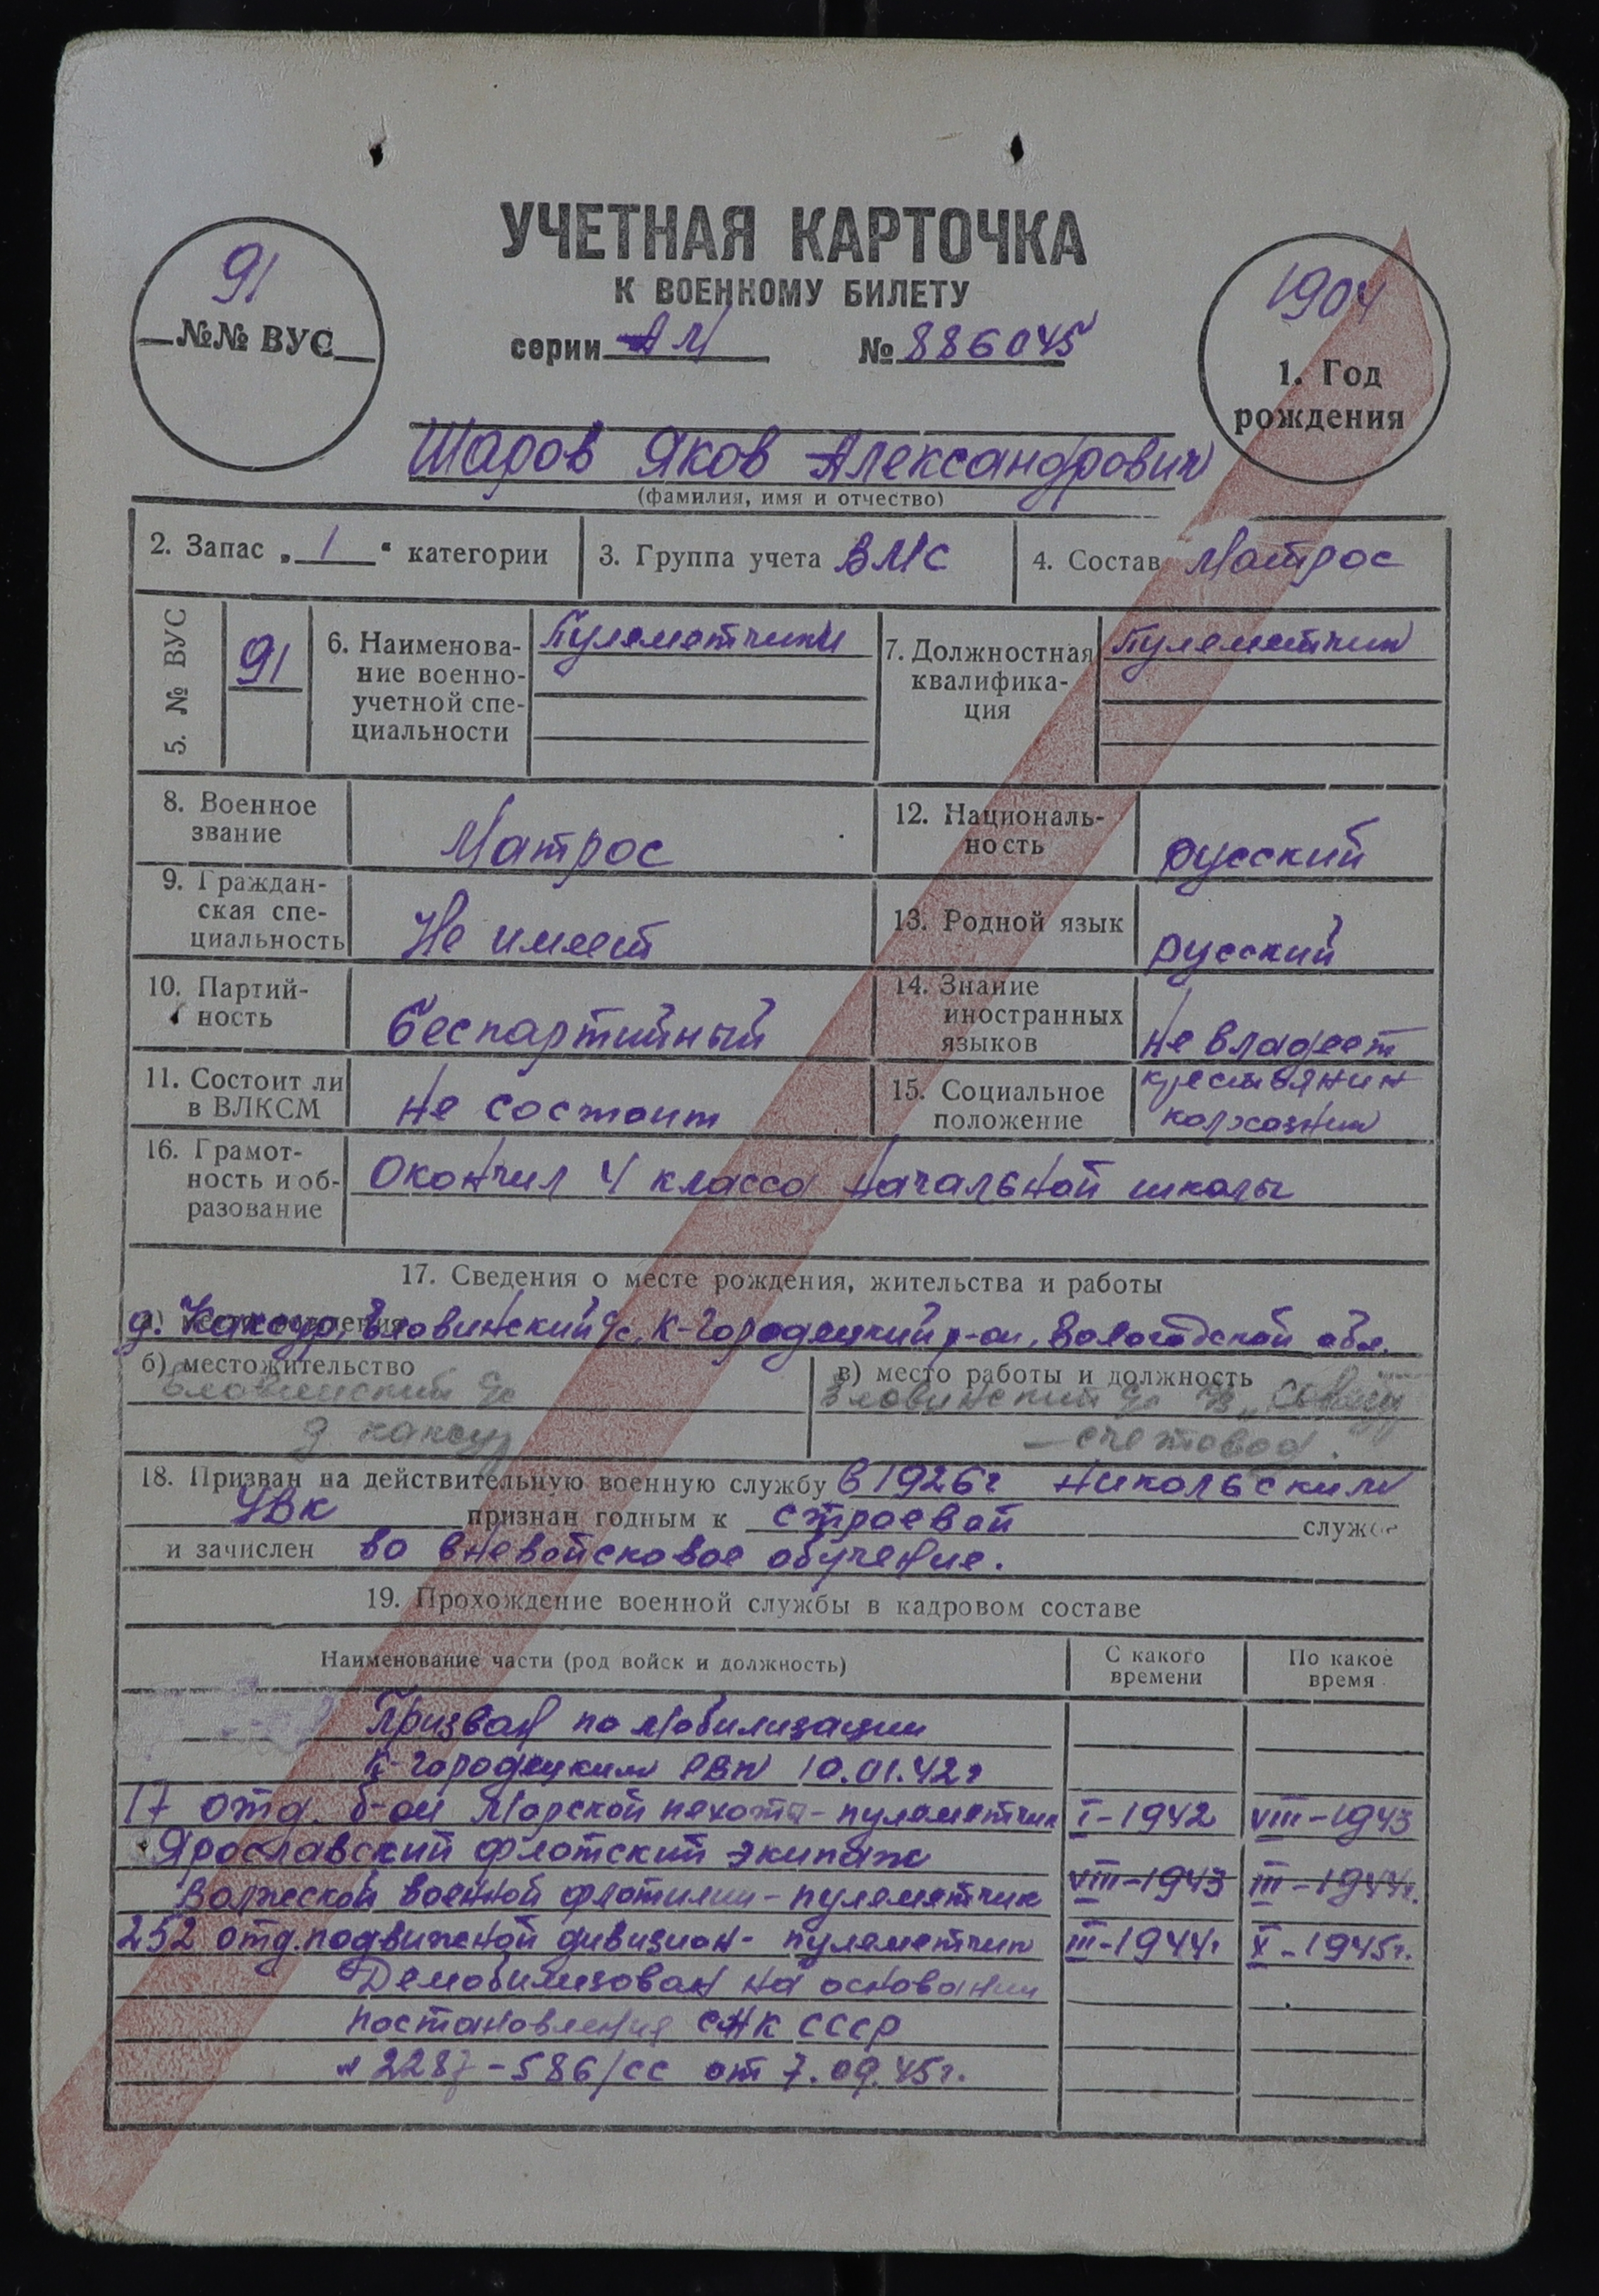 УЧЕТНАЯ КАРТОЧКА
К ВОЕННОМУ БИЛЕТУ
серии АМ № 886045
91
№№ ВУС
1904
1. Год
рождения
Шаров Яков Александрович
(фамилия, имя и отчество)
2. Запас „1“ категории
3. Группа учета ВМС
4. Состав Матрос
5. № ВУС
91
6. Наименова-
ние военно-
учетной спе-
циальности
Пулеметчики
7. Должностная
квалифика-
ция
Пулеметчик
8. Военное
звание
Матрос
9. Граждан-
ская спе-
циальность
Не имеет
10. Партий-
ность
беспартийный
11. Состоит ли
в ВЛКСМ
не состоит
12. Националь-
ность
русский
13. Родной язык
русский
14. Знание
иностранных
языков
не владеет
15. Социальное
положение
крестьянин
колхозник
16. Грамот-
ность и об-
разование
Окончил 4 класса начальной школы
17. Сведения о месте рождения, жительства и работы
д. Каксур, Еловинский с/с, К-Городецкий р-он, Вологодской обл.
б) местожительство
Еловинский с/с
д Каксур
в) место работы и должность
Еловинский с/с
– счетовод.
18. Призван на действительную военную службу в 1926г Никольским
УВК признан годным к строевой службе
и зачислен во вневойсковое обучение.
19. Прохождение военной службы в кадровом составе
Наименование части (род войск и должность)
С какого
времени
По какое
время
Призван по мобилизации
К-Городецким РВК 10.01.42г
17 отд. б-он морской пехоты - пулеметчик I-1942 VIII-1943
Ярославский флотский экипаж
Волжской военной флотилии - пулеметчик VIII-1943 III-1944г.
252 отд. подвижной дивизион - пулеметчик III-1944г X-1945г.
Демобилизован на основании
постановления СНК СССР
№ 2287-586/сс от 7.09.45г.